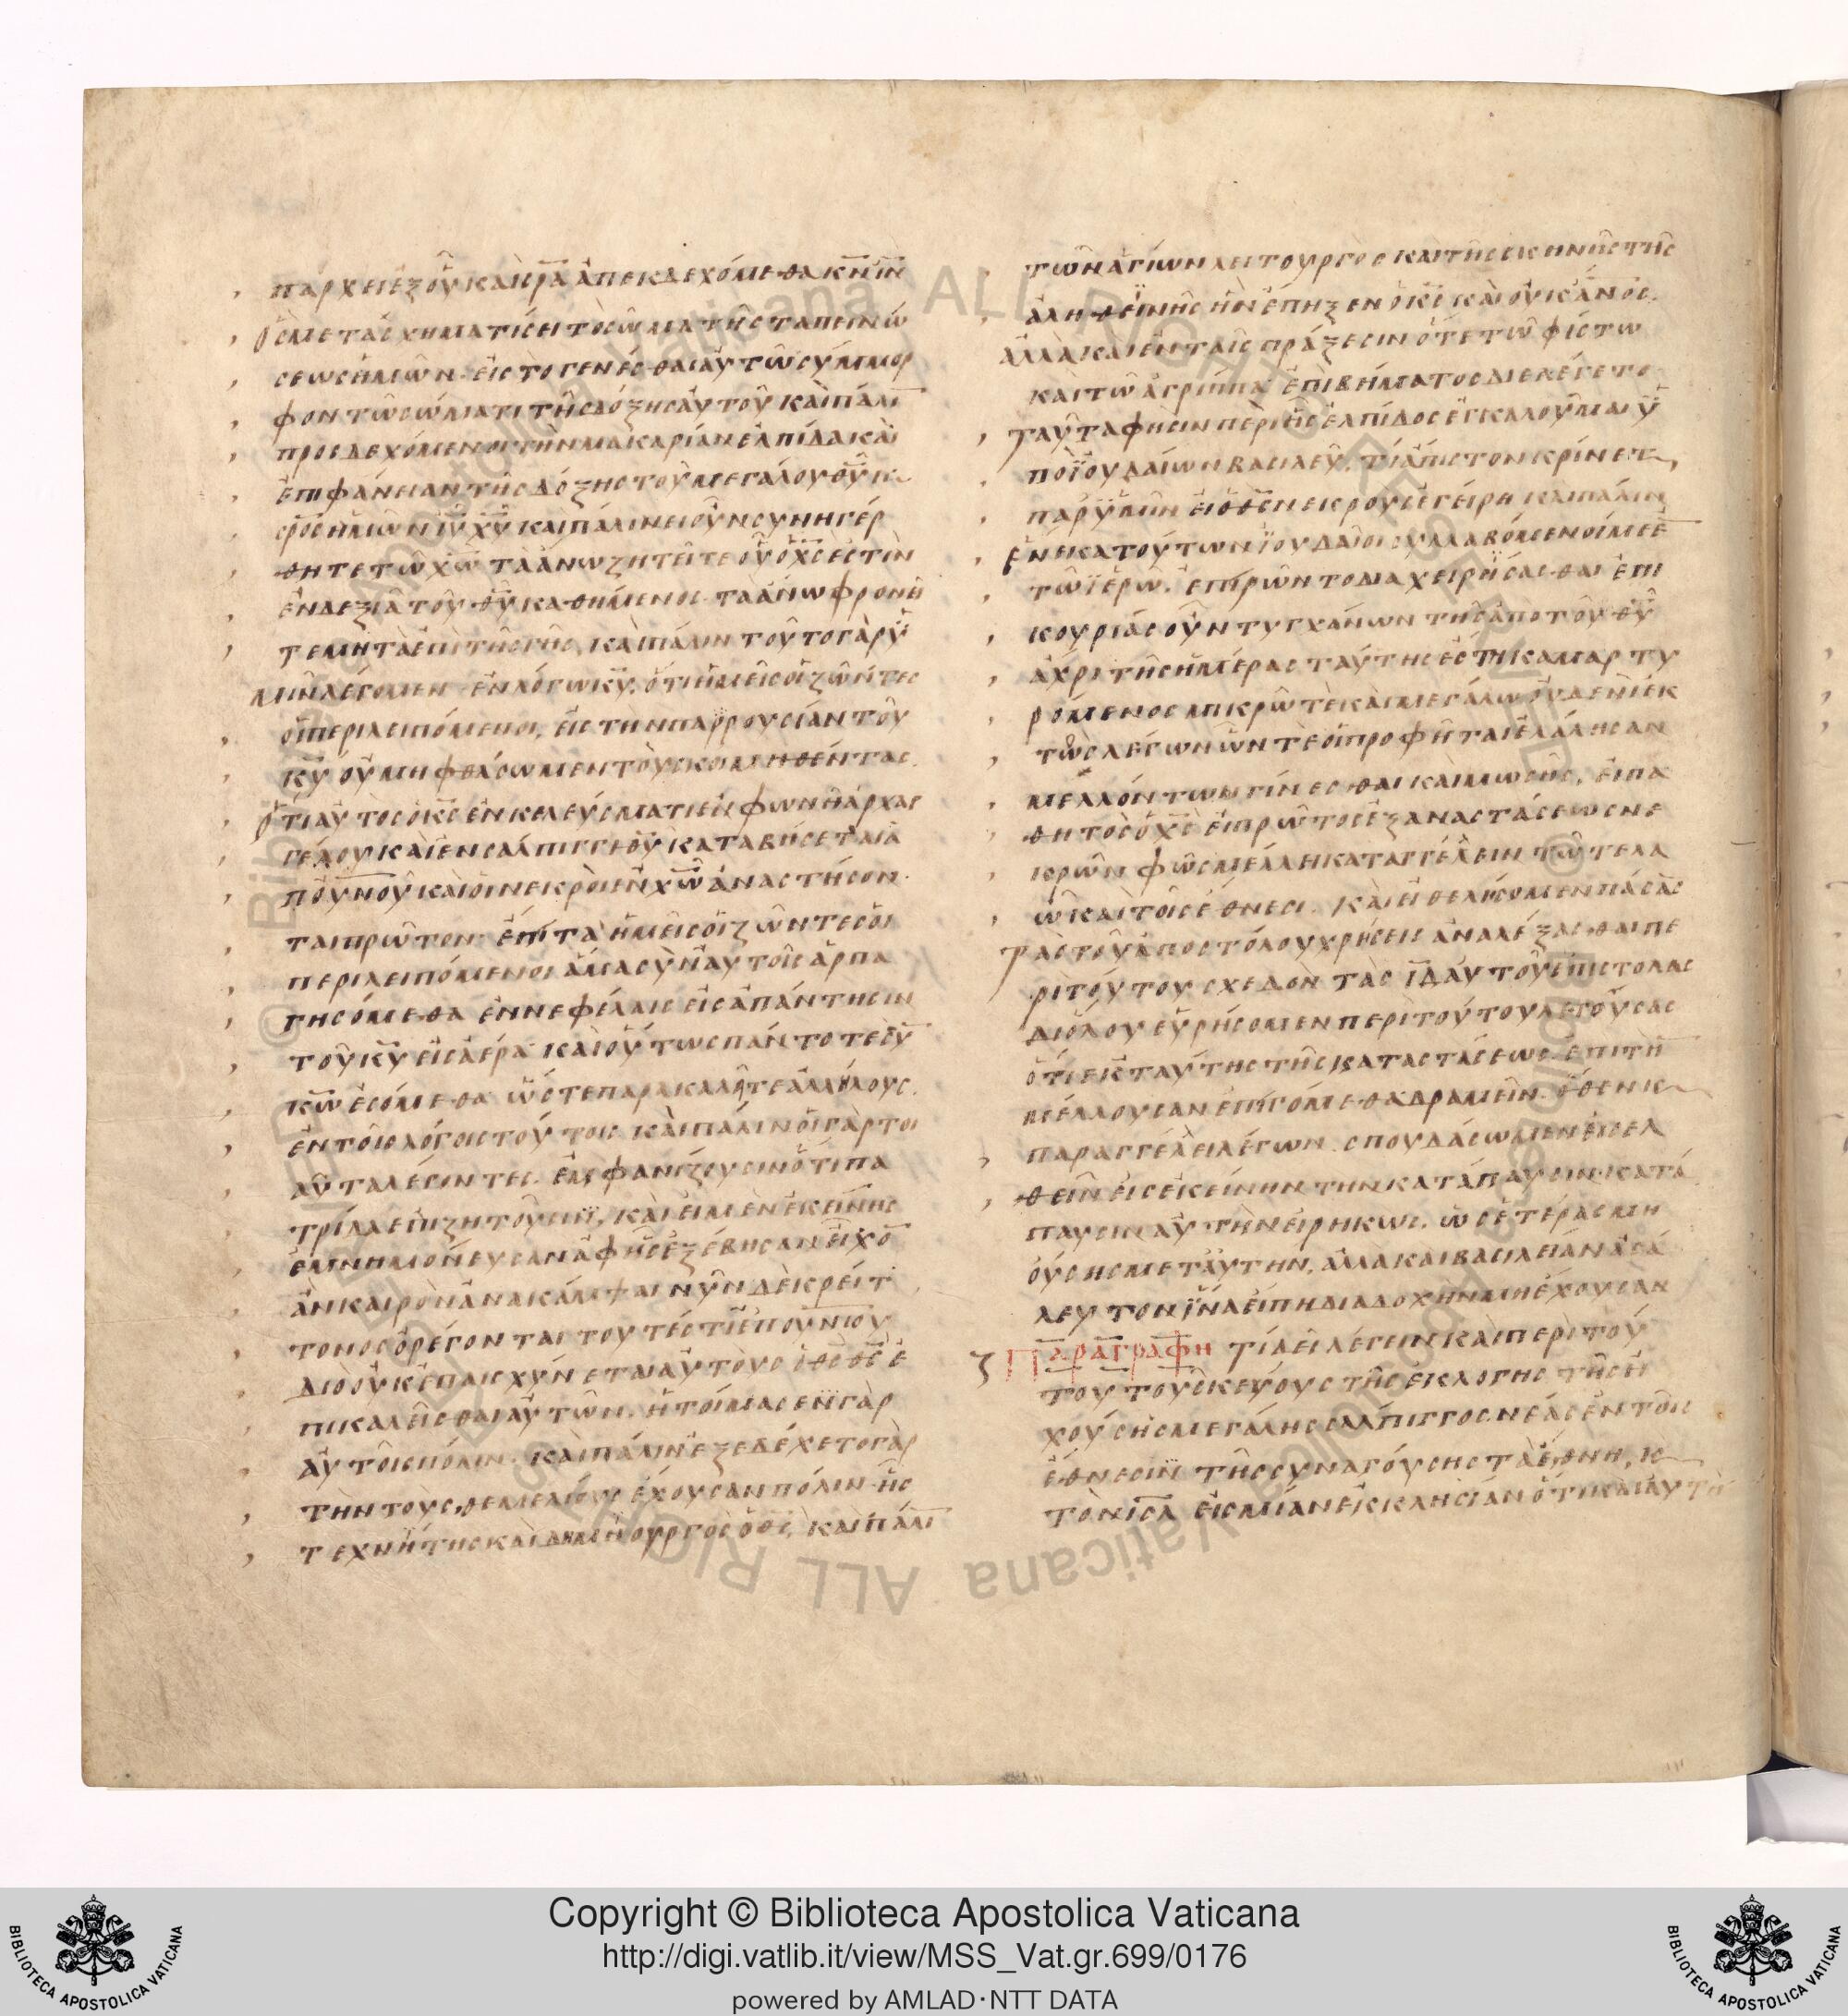 παρχει ἐξ οὗ καὶ σ̅ρ̅α̅ ἀπεκδεχόμεθα κ̅ν̅ ι̅ν̅
ὃς μετασχηματίσει τὸ σῶμα τῆς ταπεινώ
σεως ἡμῶν εἰς τὸ γενέσθαι αὐτῷ σύμμορ
φον τῷ σώματι τῆς δόξης αὐτοῦ καὶ πάλι
προσδεχόμενοι τὴν μακαρίαν ἐλπίδα καὶ
ἐπιφάνειαν τῆς δόξης τοῦ μεγάλου θ̅υ̅ κ
σ̅ρ̅ο̅ς̅ ἡμῶν ι̅υ̅ χ̅υ̅ καὶ πάλιν εἰ οὖν συνηγέρ
θητε τῷ χ̅ω̅ τὰ ἄνω ζητεῖτε οὗ ὁ χ̅ς̅ ἐστιν
ἐν δεξιᾷ τοῦ θ̅υ̅ καθήμενος τὰ ἄνω φρονεῖ
τε μὴ τὰ ἐπὶ τῆς γῆς, καὶ πάλιν τοῦτο γὰρ ὑ
μῖν λέγομεν ἐν λόγω κ̅υ̅, ὅτι ἡμεῖς οἱ ζῶντες
οἱ περιλειπόμενοι, εἰς τὴν παρρουσίαν τοῦ
κ̅υ̅ οὐ μὴ φθάσωμεν τοὺς κοιμηθέντας.
ὅτι αὐτὸς ὁ κ̅ς̅ ἐν κελεύσματι ἐν φωνῆ ἀρχαγ
γέλου καὶ ἐν σάλπιγγι θ̅υ̅ καταβήσεται ἀ
π ο̅υ̅ν̅ο̅υ̅ καὶ οἱ νεκροὶ ἐν χ̅ω̅ ἀναστήσον
ται πρῶτον· ἐπίτα ἡμεῖς οἱ ζῶντες οἱ
περιλειπόμενοι ἅμα σὺν αὐτοῖς ἁρπα
γησόμεθα ἐν νεφέλαις εἰς ἀπάντησιν
τοῦ κ̅υ̅ εἰς ἀέρα καὶ οὕτως πάντοτε σὺ
κ̅ω̅ ἐσόμεθα ὥστε παρακαλῆτε ἀλλήλους.
ἐν τοῖς λόγοις τούτοις καὶ πάλιν οἱ γὰρ τοι
αῦτα λέγοντες ἐμφανίζουσιν ὅτι πα
τρίδα ἐπιζητοῦσιν, καὶ εἰ μὲν ἐκείνης
ἐμνημόνευσαν ἀφ ἧς ἐξέβησαν εἶχο
ἂν καιρὸν ἀνακάμψαι νῦν δὲ κρείτ
τονος ὀρέγονται τουτέστιν ἐπουνιου
διὸ οὐκ ἐπαισχύνεται αὐτοὺς ὁ θ̅ς̅ θ̅ς̅ ἐ
πικαλεῖσθαι αὐτῶν. ἡτοίμασεν γὰρ
αὐτοῖς πόλιν. καὶ πάλιν ἐξεδέχετο γὰρ
τὴν τοὺς θεμελίους ἔχουσαν πόλιν ἧς
τεχνήτης καὶ δημιουργὸς ὁ θ̅ς̅, καὶ πάλι
τῶν ἁγίων λειτουργὸς καὶ τῆς σκηνῆς τῆς
ἀληθεινῆς ἣν ἔπηξεν ὁ κ̅ς̅ καὶ οὐκ ἄ̅ν̅ο̅ς̅.
ἀλλὰ καὶ ἐν ταῖς πράξεσιν ὅτε τῶ φίστω
καὶ τῶ ἀγρίππα ἐπὶ βήματος διελέγετο
ταῦτα φησιν περὶ ἧς ἐλπίδος ἐγκαλοῦμαι ὑ
πὸ ἰουδαίων βασιλεῦ, τί ἄπιστον κρίνετ
παρ ὑμῖν εἰ ὁ θ̅ς̅ νεκροὺς ἐγείρη, καὶ πάλιν
ἕνεκα τούτων ἰουδαῖοι συλλαβόμενοί με ἐ
τῶ ἱερῶ. ἐπιρῶντο διαχειρήσασθαι ἐπι
κουρίας οὖν τυγχάνων τῆς ἀπὸ τοῦ θ̅υ̅
ἄχρι τῆς ἡμέρας ταύτης ἕστηκα μαρτυ
ρόμενος μικρῶ τε καὶ μεγάλω οὐδὲν ἐκ
τὸς λέγων ὧν τε οἱ προφῆται ἐλάλησαν
μελλόντων γίνεσθαι καὶ μωσῆς, εἰ πα
θητὸς ὁ χ̅ς̅ εἰ πρῶτος ἐξ ἀναστάσεως νε
κρῶν φῶς μέλλη καταγγέλειν τῶ τε λα
ῶ καὶ τοῖς ἔθνεσι. καὶ εἰ θελήσομεν πάσας
τὰς τοῦ ἀποστόλου χρήσεις ἀναλέξασθαι πε
ρὶ τούτου σχεδὸν τὰς ι̅δ̅ αὐτοῦ ἐπιστολὰς
διόλου εὑρήσομεν περὶ τούτου λεγούσας
ὅτι ἐκ ταύτης τῆς καταστάσεως ἐπὶ τὴ
μέλλουσαν ἐπιγόμεθα δραμεῖν. ὅθεν κ
παραγγέλει λέγων. σπουδάσωμεν εἰσελ
θεῖν εἰς ἐκείνην τὴν κατάπαυσιν· κατά
παυσιν αὐτὴν εἰρηκως. ὡς ἑτέρας μὴ
οὔσης μετ αὐτην, ἀλλὰ καὶ βασιλείαν ἀσά
λευτον ἵνα εἴπη διαδοχὴν μὴ ἔχουσαν
ζ Παραγραφη τί δεῖ λέγειν καὶ περὶ τού
του τοῦ σκεύους τῆς ἐκλογῆς τῆς ἠ
χούσης μεγάλης σάλπιγγος νεας ἐν τοῖς
ἔθνεσιν τῆς συναγούσης τὰ ἔθνη, κ
τὸν ι̅σ̅λ̅ εἰς μίαν ἐκκλησίαν ὅτι καὶ αὐτὴ
Copyright © Biblioteca Apostolica Vaticana
http://digi.vatlib.it/view/MSS_Vat.gr.699/0176
powered by AMLAD·NTT DATA
BIBLIOTECA APOSTOLICA VATICANA
BIBLIOTECA APOSTOLICA VATICANA